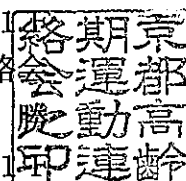 京都高齢
期運動連
絡会之印